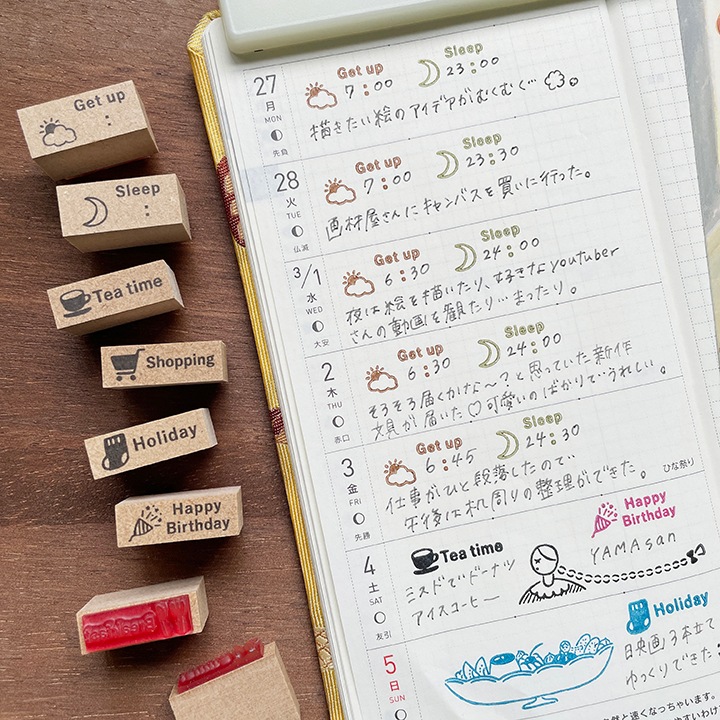 Get up
:
Sleep
:
Tea time
Shopping
Holiday
Happy
Birthday
27
月
MON
先負
Get up
7:00
Sleep
23:00
描きたい絵のアイデアがむくむく…
28
火
TUE
仏滅
Get up
7:00
Sleep
23:30
画材屋さんにキャンバスを買いに行った。
3/1
水
WED
大安
Get up
6:30
Sleep
24:00
夜は絵を描いたり、好きなyoutuber
さんの動画を観たり…まったり。
2
木
THU
赤口
Get up
6:30
Sleep
24:00
そろそろ届くかな〜?と思っていた新作
文具が届いた♡可愛いのばかりでうれしい。
3
金
FRI
先勝
Get up
6:45
Sleep
24:30
ひな祭り
仕事がひと段落したので
午後は机周りの整理ができた。
4
土
SAT
友引
Tea time
ミスドでドーナツ
アイスコーヒー
Happy
Birthday
YAMAsan
5
日
SUN
Holiday
映画3本立て
ゆっくりできた